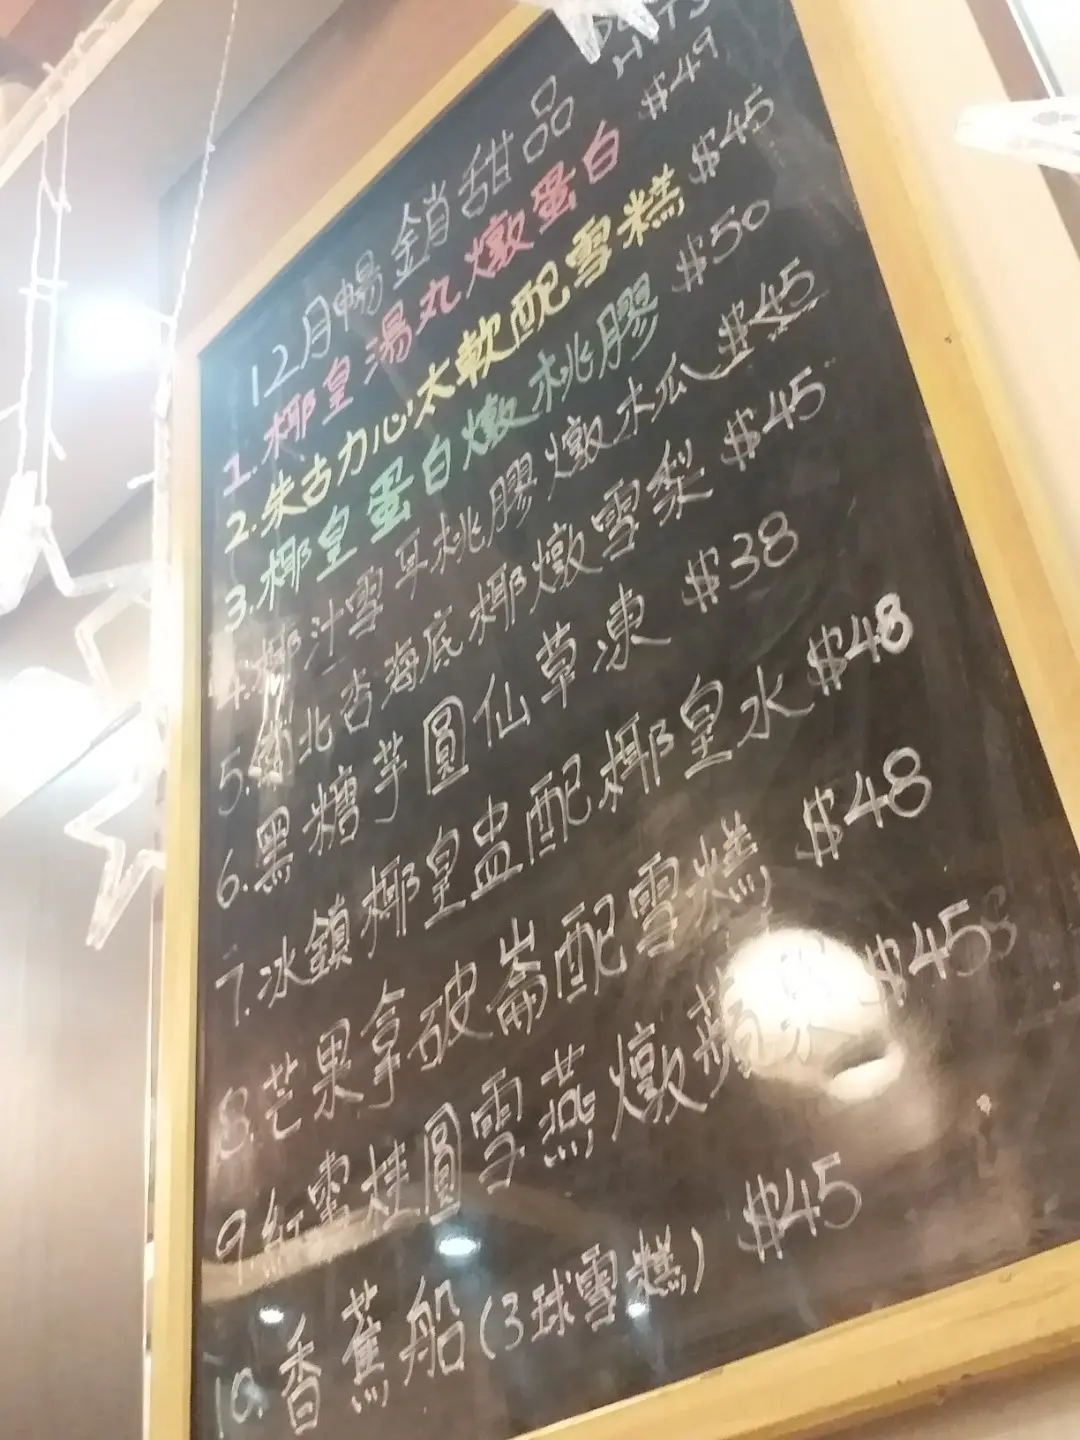 12月暢銷甜品
1.椰皇湯丸燉蛋白 $49
2.朱古力心太軟配雪糕 $45
3.椰皇蛋白燉桃膠 $50
4.椰汁雪耳桃膠燉木瓜 $45
5.南北杏海底椰燉雪梨 $45
6.黑糖芋圓仙草凍 $38
7.冰鎮椰皇盅配椰皇水 $48
8.芒果拿破崙配雪糕 $48
9.紅棗桂圓雪燕燉蘋果 $45
10.香蕉船(3球雪糕) $45